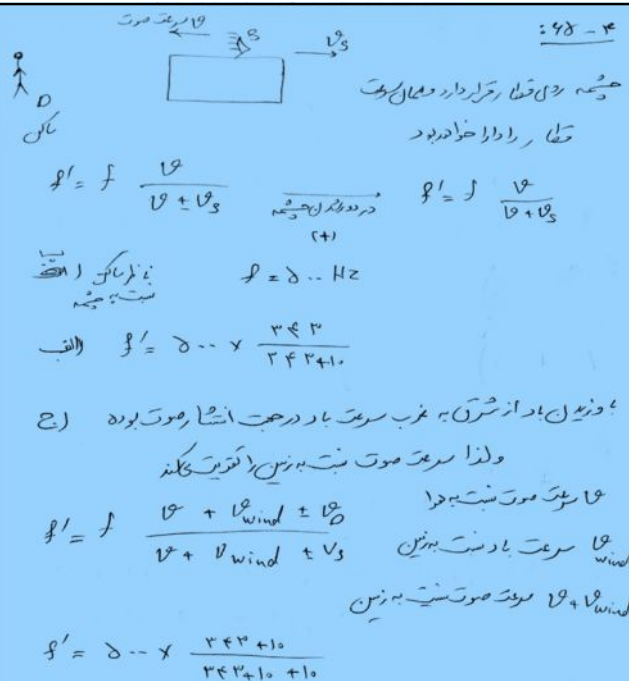 ۴ - ۶۵ :
v سرعت صوت
S
v_s
D
ساکن
چشمه روی قطار قرار دارد و همان سرعت
قطار را دارا خواهد بود
f' = f v / (v ± v_s) در دور شدن چشمه (+) f' = f v / (v + v_s)
f = ۵۰۰ Hz
ناظر ساکن
نسبت به چشمه
الف) f' = ۵۰۰ × ۳۴۳ / (۳۴۳+۱۰)
ج) با وزیدن باد از شرق به غرب سرعت باد در جهت انتشار صوت بوده
ولذا سرعت صوت نسبت به زمین را تقویت میکند
v سرعت صوت نسبت به هوا
f' = f (v + v_wind ± v_D) / (v + v_wind ± v_s)
v_wind سرعت باد نسبت به زمین
v + v_wind سرعت صوت نسبت به زمین
f' = ۵۰۰ × (۳۴۳ +۱۰) / (۳۴۳+۱۰ +۱۰)